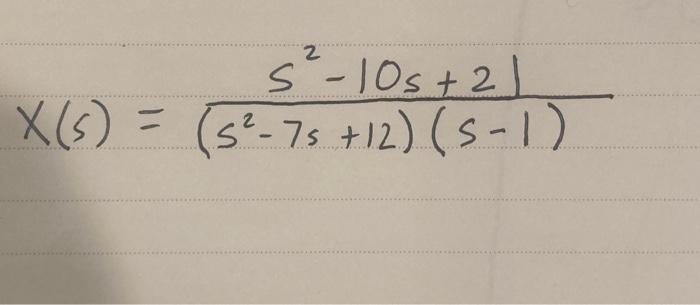 X(s) = (s² - 10s + 21) / ((s² - 7s + 12)(s - 1))